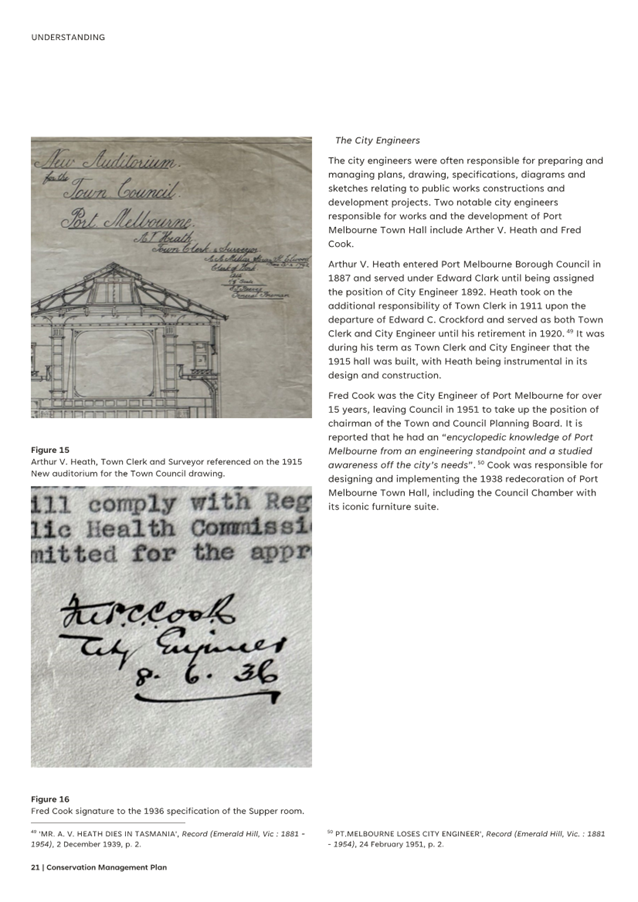 UNDERSTANDING
New Auditorium.
for the
Town Council.
Port Melbourne.
A.V. Heath
Town Clerk & Surveyor
Figure 15
Arthur V. Heath, Town Clerk and Surveyor referenced on the 1915
New auditorium for the Town Council drawing.
ill comply with Reg
lic Health Commissi
mitted for the appr
City Engineer
8. 6. 36
Figure 16
Fred Cook signature to the 1936 specification of the Supper room.
The City Engineers
The city engineers were often responsible for preparing and
managing plans, drawing, specifications, diagrams and
sketches relating to public works constructions and
development projects. Two notable city engineers
responsible for works and the development of Port
Melbourne Town Hall include Arther V. Heath and Fred
Cook.
Arthur V. Heath entered Port Melbourne Borough Council in
1887 and served under Edward Clark until being assigned
the position of City Engineer 1892. Heath took on the
additional responsibility of Town Clerk in 1911 upon the
departure of Edward C. Crockford and served as both Town
Clerk and City Engineer until his retirement in 1920. 49 It was
during his term as Town Clerk and City Engineer that the
1915 hall was built, with Heath being instrumental in its
design and construction.
Fred Cook was the City Engineer of Port Melbourne for over
15 years, leaving Council in 1951 to take up the position of
chairman of the Town and Council Planning Board. It is
reported that he had an "encyclopedic knowledge of Port
Melbourne from an engineering standpoint and a studied
awareness off the city's needs". 50 Cook was responsible for
designing and implementing the 1938 redecoration of Port
Melbourne Town Hall, including the Council Chamber with
its iconic furniture suite.
49 'MR. A. V. HEATH DIES IN TASMANIA', Record (Emerald Hill, Vic : 1881 -
1954), 2 December 1939, p. 2.
50 PT.MELBOURNE LOSES CITY ENGINEER', Record (Emerald Hill, Vic. : 1881
- 1954), 24 February 1951, p. 2.
21 | Conservation Management Plan